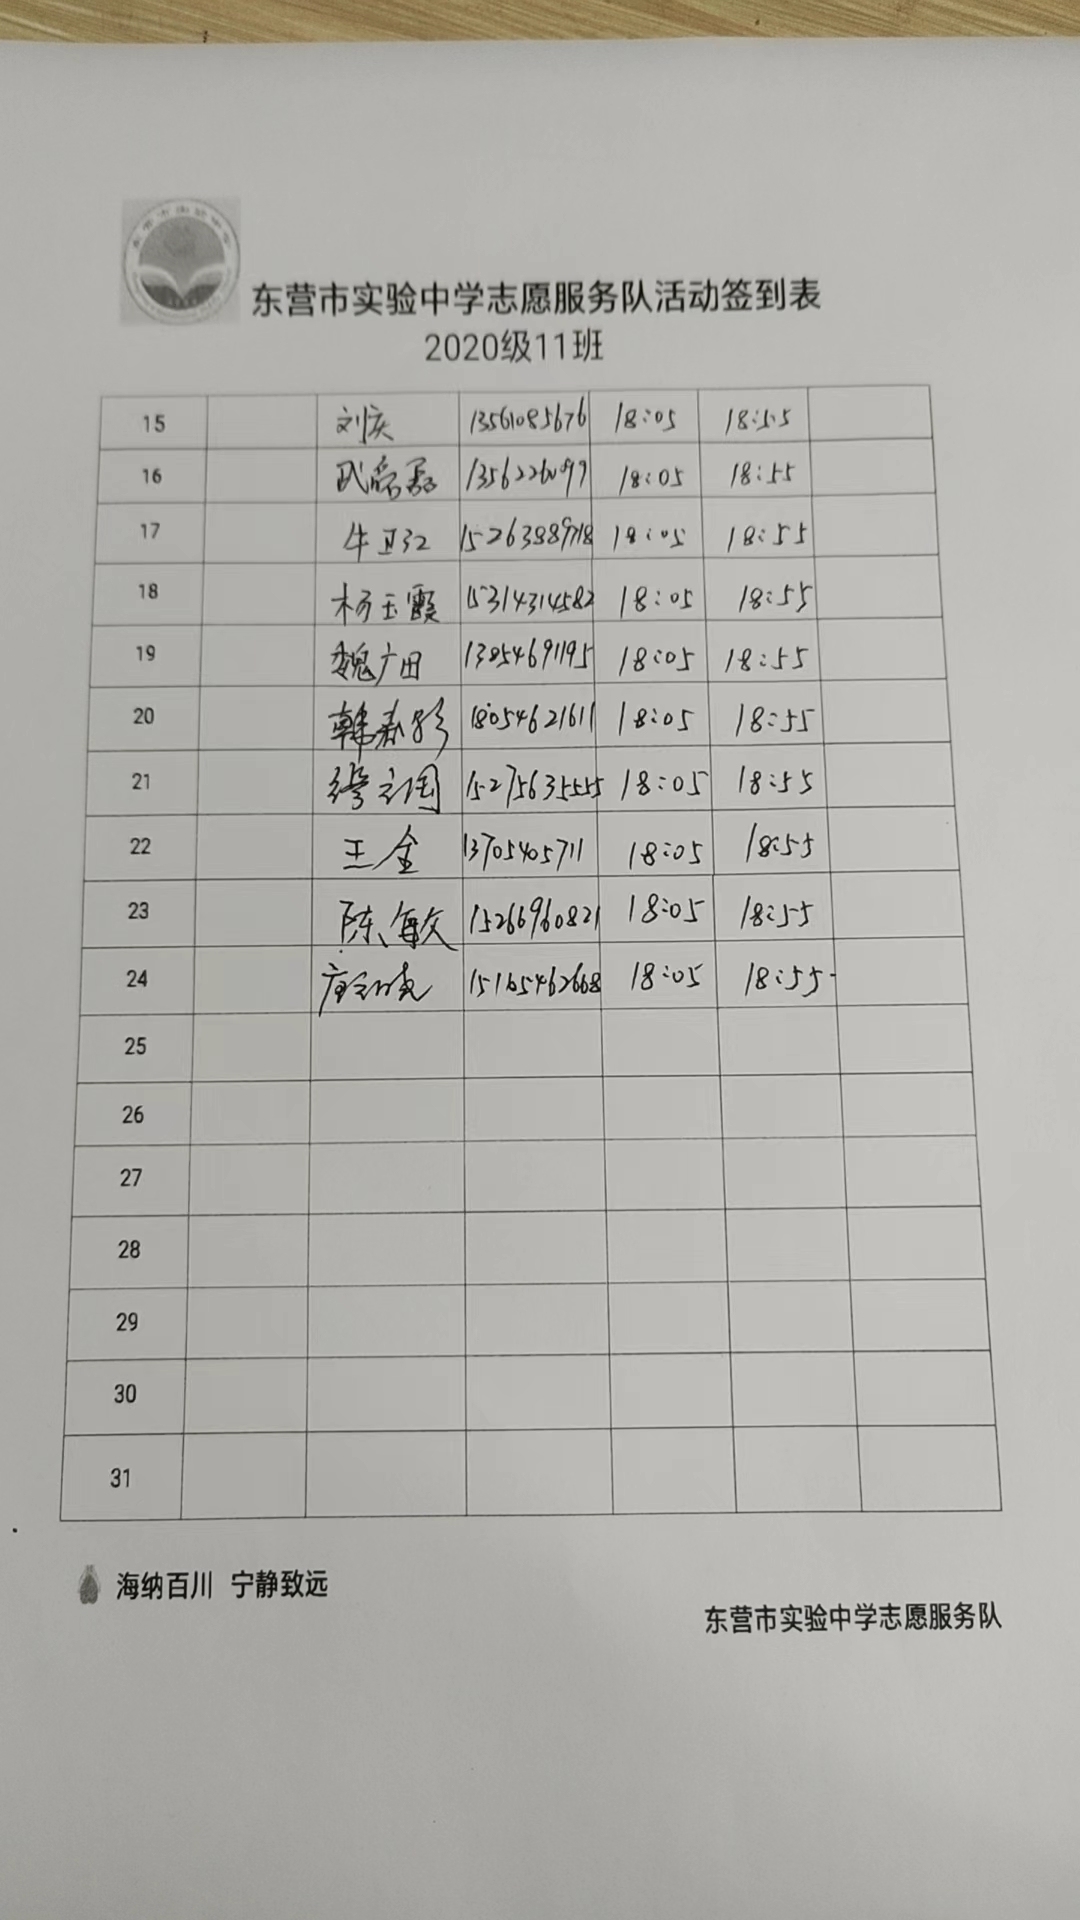 东营市实验中学志愿服务队活动签到表
2020级11班
15 刘庆 13561085676 18:05 18:55
16 武 18:05 18:55
17 牛卫红 18:05 18:55
18 杨玉霞 15314314582 18:05 18:55
19 魏广田 13854691195 18:05 18:55
20 韩春 18054621611 18:05 18:55
21 15275635555 18:05 18:55
22 王金 13705405711 18:05 18:55
23 陈海文 15266960821 18:05 18:55
24 15165462668 18:05 18:55
25
26
27
28
29
30
31
海纳百川 宁静致远
东营市实验中学志愿服务队